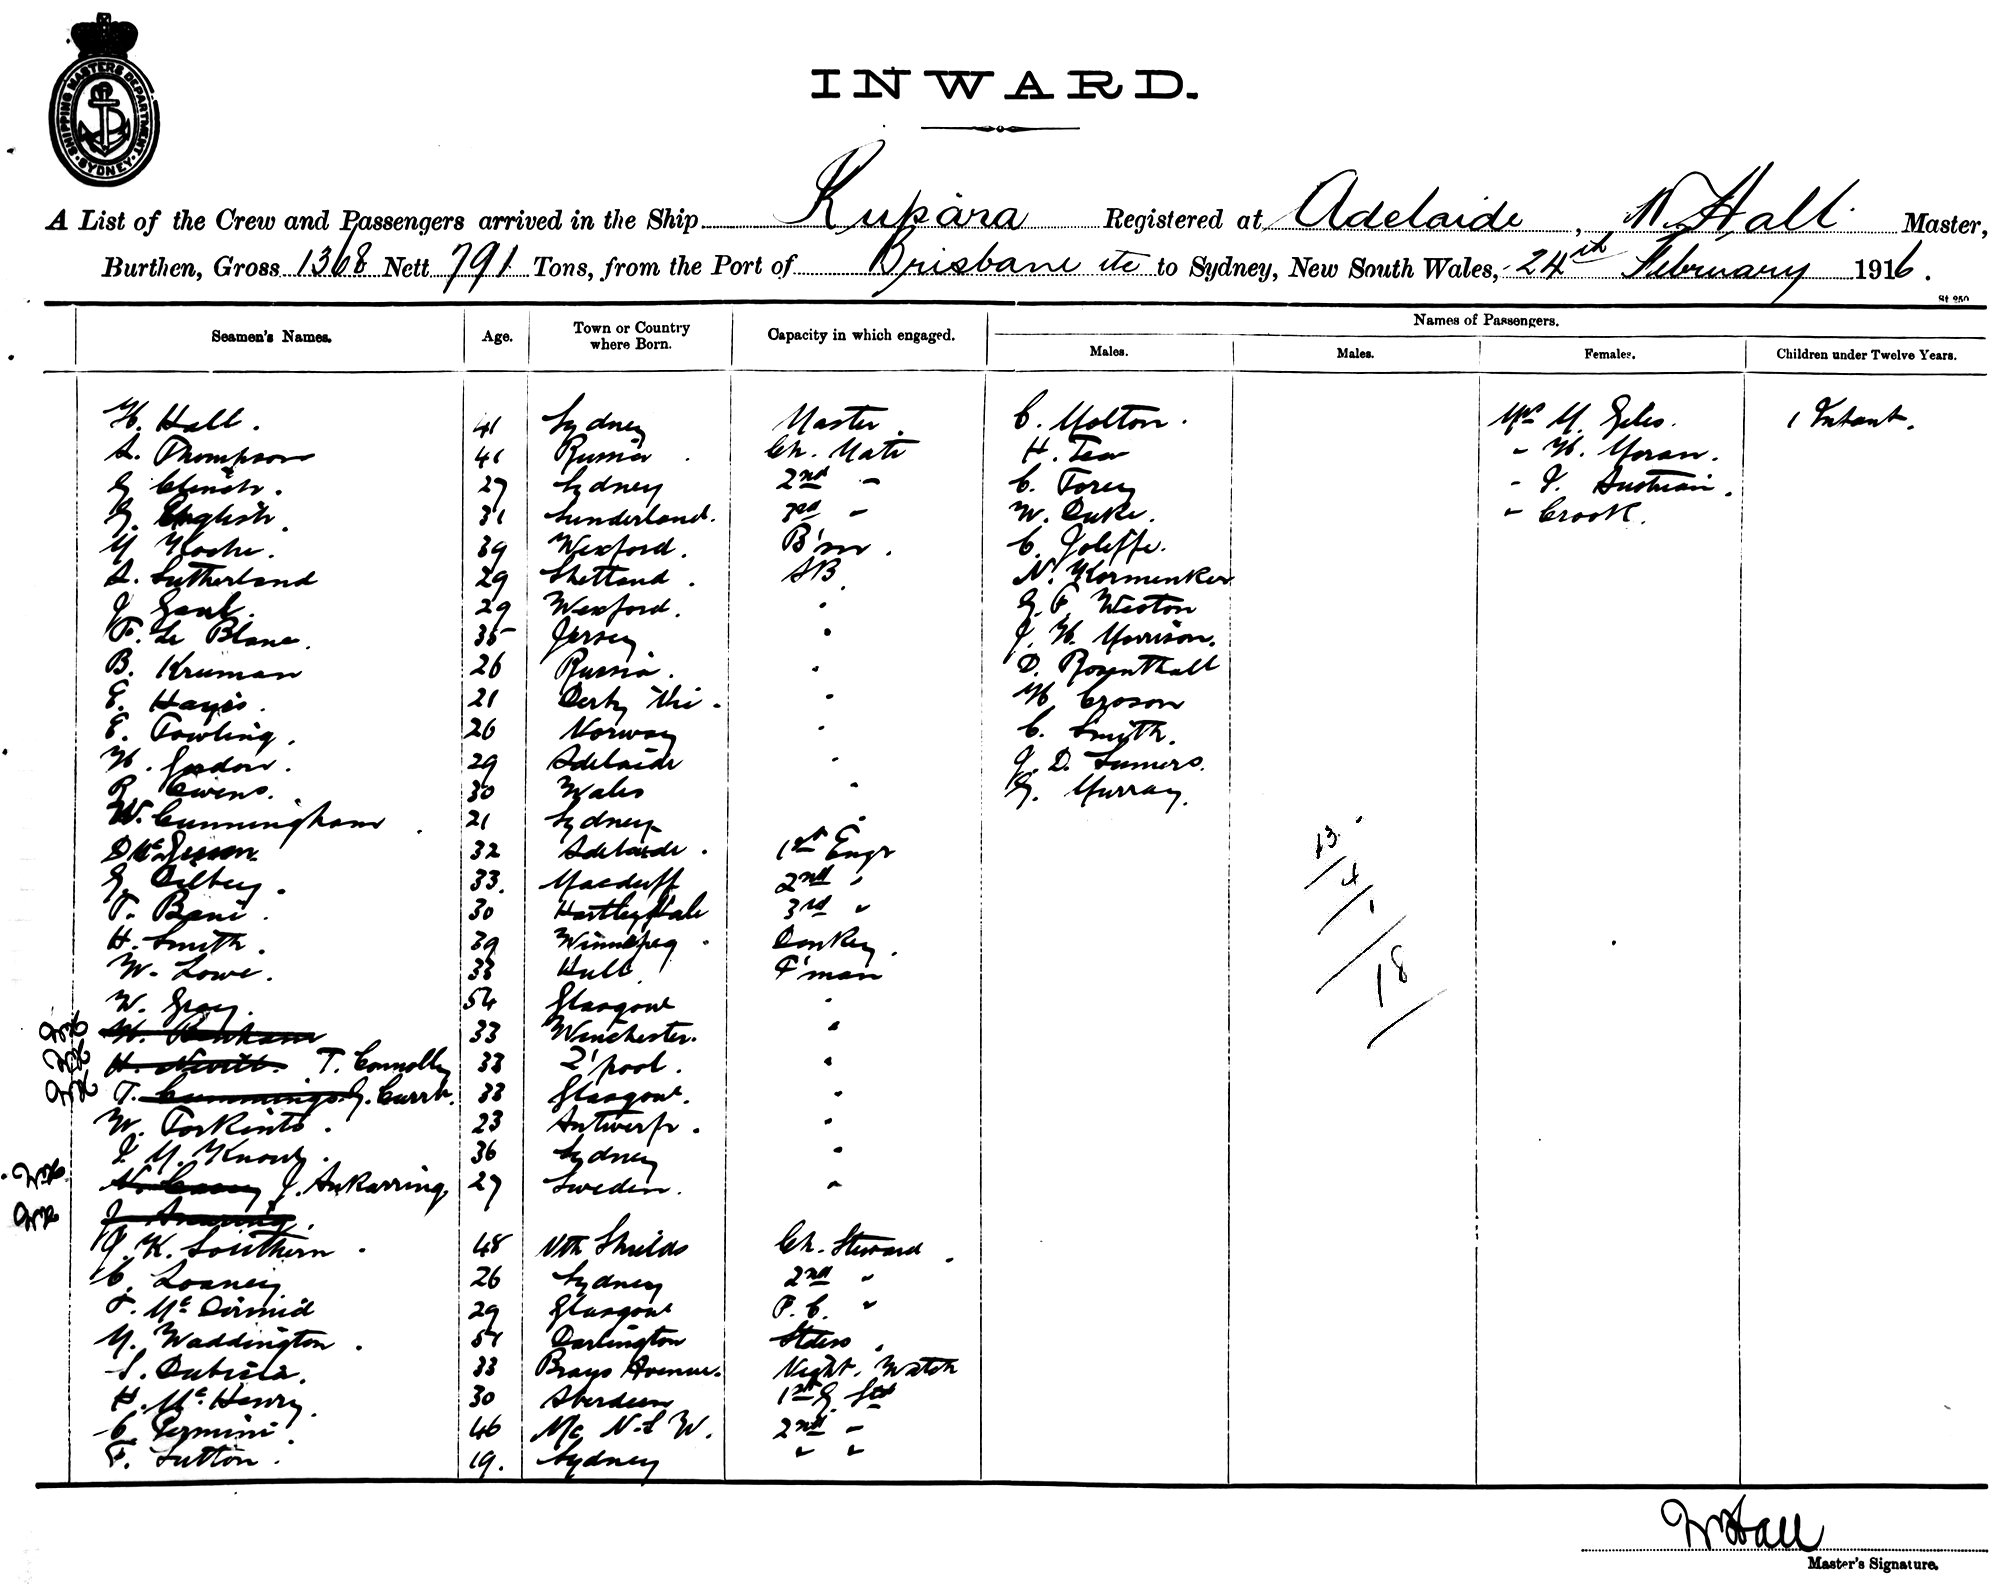 SHIPPING MASTERS DEPARTMENT SYDNEY
INWARD.
A List of the Crew and Passengers arrived in the Ship Kupara Registered at Adelaide, W. Hall Master,
Burthen, Gross 1368 Nett 791 Tons, from the Port of Brisbane etc to Sydney, New South Wales, 24th February 1916.
St 250
Names of Passengers.
Seamen's Names. Age. Town or Country where Born. Capacity in which engaged. Males. Males. Females. Children under Twelve Years.
W. Hall. 41 Sydney Master. C. Molton. Mrs M. Giles. 1 Infant.
A. Thompson 41 Russia. Ch. Mate H. Tea " W. Moran.
G Clinch. 27 Sydney 2nd " C. Torey " J. Austrian.
G. English. 31 Sunderland. 3rd " W. Duke. " Crook.
M Roche. 39 Wexford. B'sn. C. Joleffe.
A. Sutherland 29 Shetland. AB N.
J. 29 Wexford. " G. F. Weston
F. Le Blanc. 35 Jersey " J. W. Morrison.
B. Kruman 26 Russia. " D. Rosenthall
E. Hayes. 21 Derby " W Croson
E. Towling. 26 Norway " C. Smyth.
W. Gordon. 29 Adelaide " J. D. Sumers.
R Owens. 30 Wales " G. Murray.
W. Cunningham. 21 Sydney "
D Mc 32 Adelaide. 1st Engr
G. Dilbey. 33. Macduff 2nd "
T. 30 3rd "
H. Smith. 39 Winnepeg. Donkey.
W. Lowe. 33 Hull F'man
W. Gray. 54 Glasgow "
W. Benham 33 Winchester. "
H. Nevitt. T. Connolly 33 L'pool. "
T. Cummings G. Currh. 33 Glasgow. "
W. Torkints. 23 Antwerp. "
J. M. 36 Sydney "
N. Casey J. Ankarring. 27 Sweden. "
J
J. K. Southern. 48 Nth Shields Ch. Steward.
C. Looney 26 Sydney 2nd "
J. Mc Dirmid 29 Glasgow P.C. "
M. Waddington. 54 Darlington Stdess.
S. 33 Grays Avenue. Night. Watch
H. Mc Henry. 30 Aberdeen 1st G. Std
C. 46 N/c N.S.W. 2nd "
F. Sutton. 19. Sydney " "
13
/4
/1
/18
W Hall
Master's Signature.